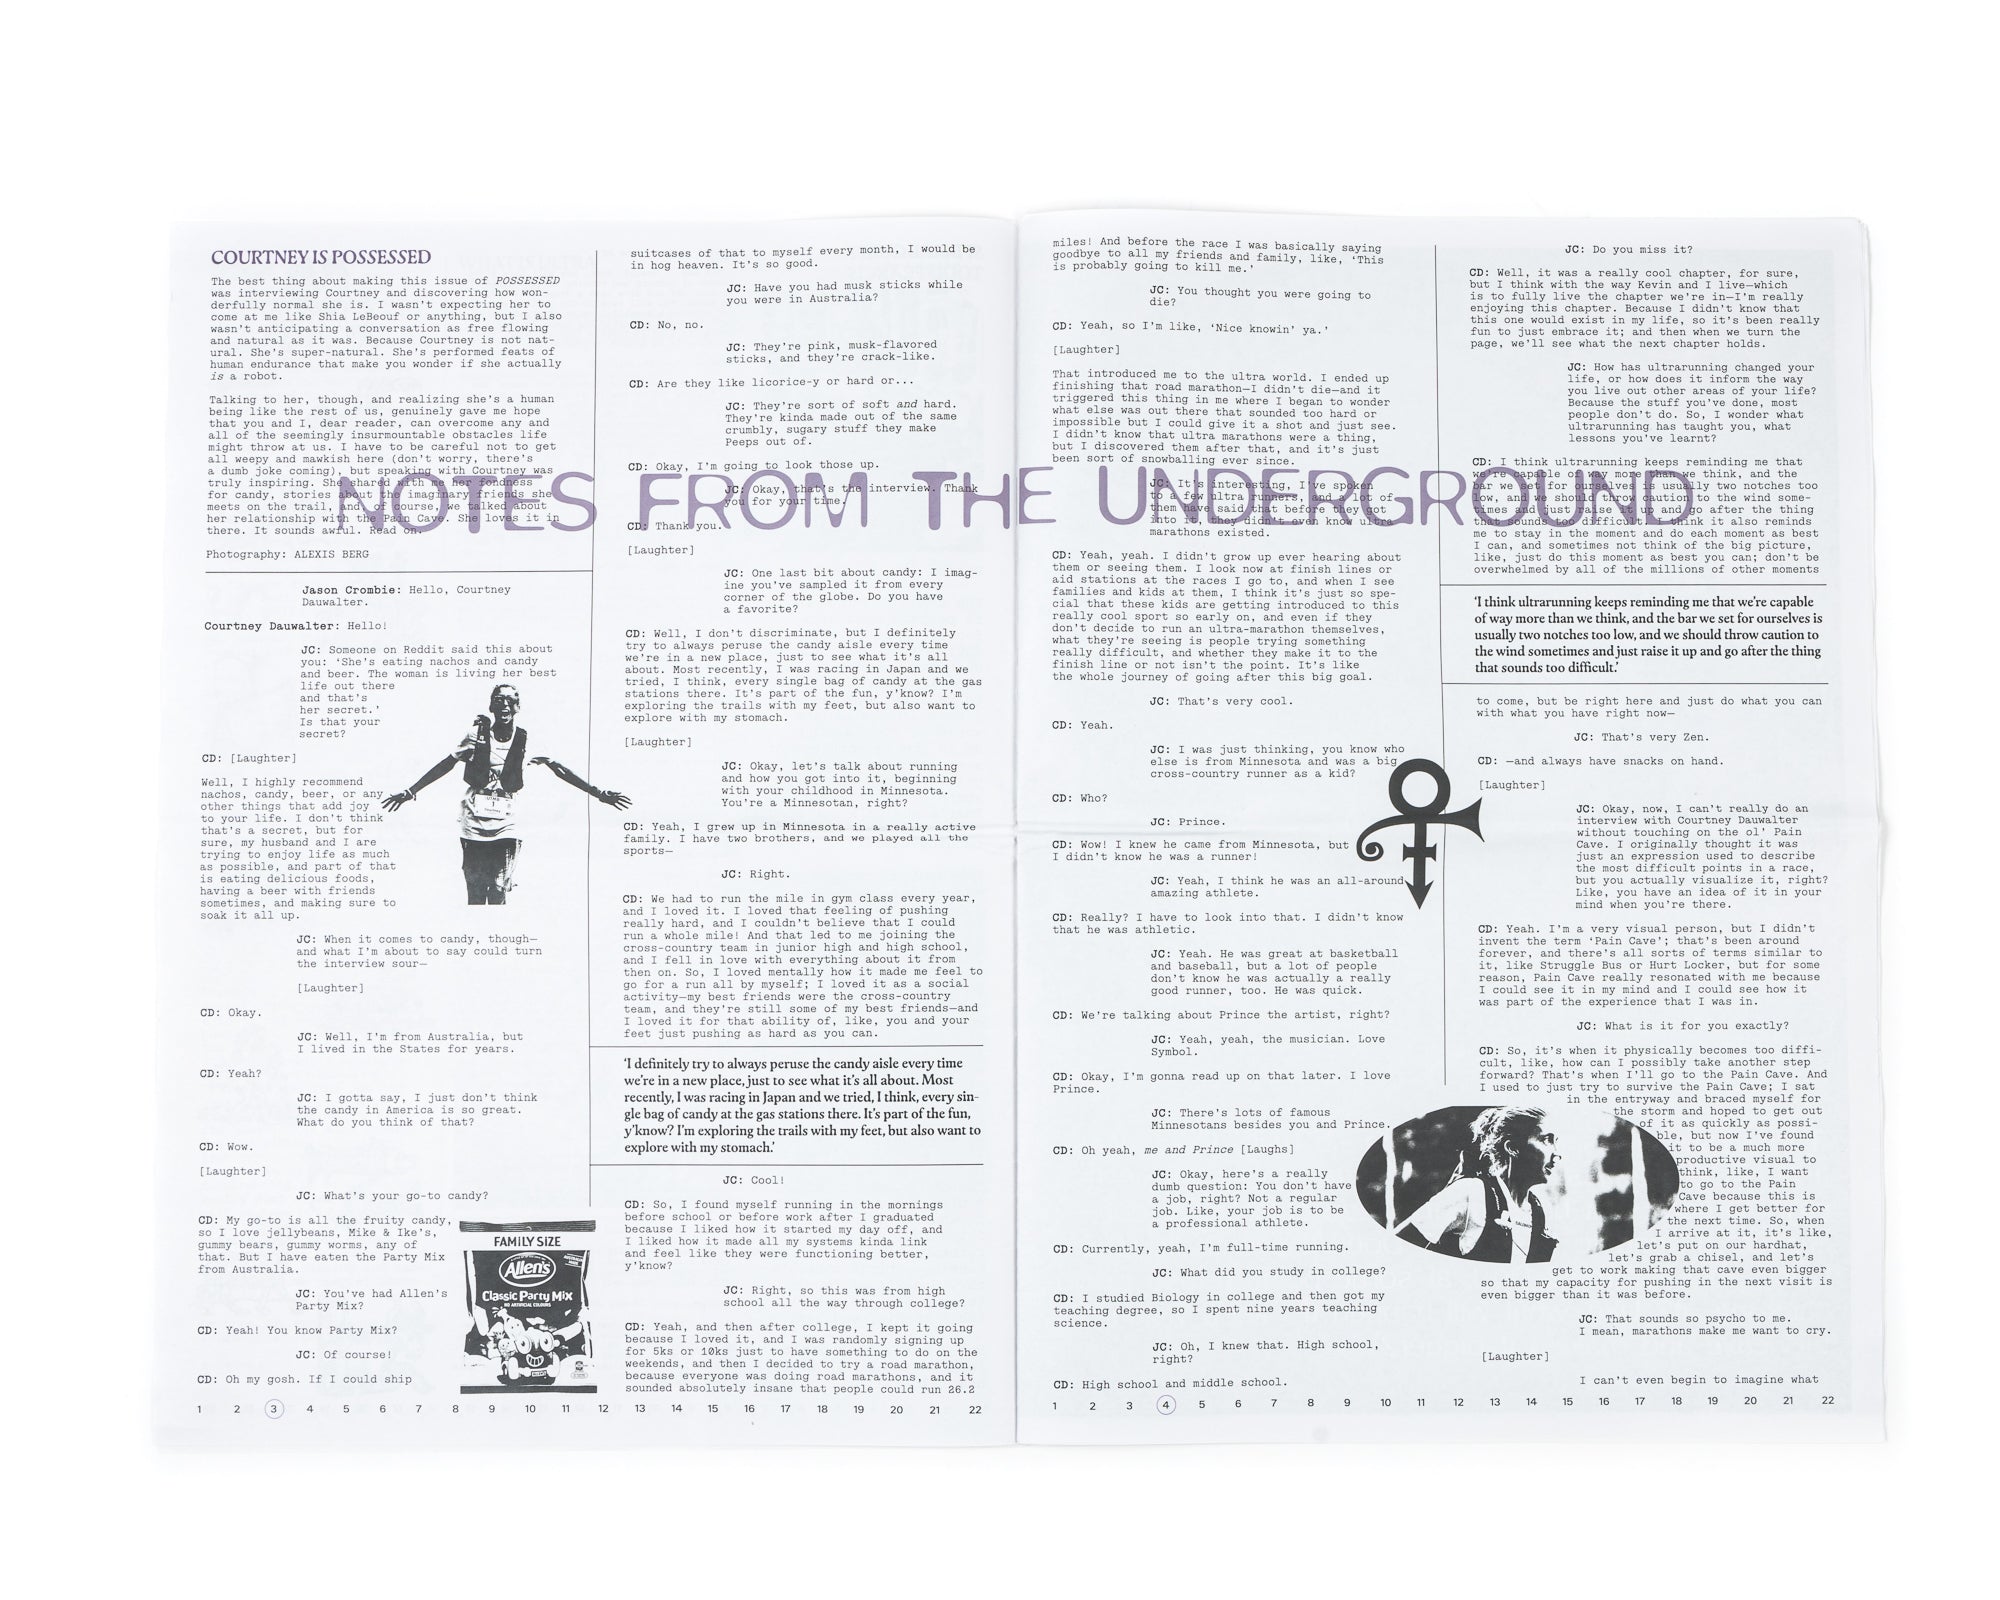 COURTNEY IS POSSESSED
The best thing about making this issue of POSSESSED
was interviewing Courtney and discovering how won-
derfully normal she is. I wasn't expecting her to
come at me like Shia LeBeouf or anything, but I also
wasn't anticipating a conversation as free flowing
and natural as it was. Because Courtney is not nat-
ural. She's super-natural. She's performed feats of
human endurance that make you wonder if she actually
is a robot.
Talking to her, though, and realizing she's a human
being like the rest of us, genuinely gave me hope
that you and I, dear reader, can overcome any and
all of the seemingly insurmountable obstacles life
might throw at us. I have to be careful not to get
all weepy and mawkish here (don't worry, there's
a dumb joke coming), but speaking with Courtney was
truly inspiring. She shared with me her fondness
for candy, stories about the imaginary friends she
meets on the trail, and, of course, we talked about
her relationship with the Pain Cave. She loves it in
there. It sounds awful. Read on.
Photography: ALEXIS BERG
NOTES FROM THE UNDERGROUND
Jason Crombie: Hello, Courtney
Dauwalter.
Courtney Dauwalter: Hello!
JC: Someone on Reddit said this about
you: 'She's eating nachos and candy
and beer. The woman is living her best
life out there
and that's
her secret.'
Is that your
secret?
CD: [Laughter]
Well, I highly recommend
nachos, candy, beer, or any
other things that add joy
to your life. I don't think
that's a secret, but for
sure, my husband and I are
trying to enjoy life as much
as possible, and part of that
is eating delicious foods,
having a beer with friends
sometimes, and making sure to
soak it all up.
JC: When it comes to candy, though—
and what I'm about to say could turn
the interview sour—
[Laughter]
CD: Okay.
JC: Well, I'm from Australia, but
I lived in the States for years.
CD: Yeah?
JC: I gotta say, I just don't think
the candy in America is so great.
What do you think of that?
CD: Wow.
[Laughter]
JC: What's your go-to candy?
CD: My go-to is all the fruity candy,
so I love jellybeans, Mike & Ike's,
gummy bears, gummy worms, any of
that. But I have eaten the Party Mix
from Australia.
JC: You've had Allen's
Party Mix?
CD: Yeah! You know Party Mix?
JC: Of course!
CD: Oh my gosh. If I could ship
FAMILY SIZE
Allen's
Classic Party Mix
NO ARTIFICIAL COLOURS
suitcases of that to myself every month, I would be
in hog heaven. It's so good.
JC: Have you had musk sticks while
you were in Australia?
CD: No, no.
JC: They're pink, musk-flavored
sticks, and they're crack-like.
CD: Are they like licorice-y or hard or...
JC: They're sort of soft and hard.
They're kinda made out of the same
crumbly, sugary stuff they make
Peeps out of.
CD: Okay, I'm going to look those up.
JC: Okay, that's the interview. Thank
you for your time.
CD: Thank you.
[Laughter]
JC: One last bit about candy: I imag-
ine you've sampled it from every
corner of the globe. Do you have
a favorite?
CD: Well, I don't discriminate, but I definitely
try to always peruse the candy aisle every time
we're in a new place, just to see what it's all
about. Most recently, I was racing in Japan and we
tried, I think, every single bag of candy at the gas
stations there. It's part of the fun, y'know? I'm
exploring the trails with my feet, but also want to
explore with my stomach.
[Laughter]
JC: Okay, let's talk about running
and how you got into it, beginning
with your childhood in Minnesota.
You're a Minnesotan, right?
CD: Yeah, I grew up in Minnesota in a really active
family. I have two brothers, and we played all the
sports—
JC: Right.
CD: We had to run the mile in gym class every year,
and I loved it. I loved that feeling of pushing
really hard, and I couldn't believe that I could
run a whole mile! And that led to me joining the
cross-country team in junior high and high school,
and I fell in love with everything about it from
then on. So, I loved mentally how it made me feel to
go for a run all by myself; I loved it as a social
activity—my best friends were the cross-country
team, and they're still some of my best friends—and
I loved it for that ability of, like, you and your
feet just pushing as hard as you can.
'I definitely try to always peruse the candy aisle every time
we're in a new place, just to see what it's all about. Most
recently, I was racing in Japan and we tried, I think, every sin-
gle bag of candy at the gas stations there. It's part of the fun,
y'know? I'm exploring the trails with my feet, but also want to
explore with my stomach.'
JC: Cool!
CD: So, I found myself running in the mornings
before school or before work after I graduated
because I liked how it started my day off, and
I liked how it made all my systems kinda link
and feel like they were functioning better,
y'know?
JC: Right, so this was from high
school all the way through college?
CD: Yeah, and then after college, I kept it going
because I loved it, and I was randomly signing up
for 5ks or 10ks just to have something to do on the
weekends, and then I decided to try a road marathon,
because everyone was doing road marathons, and it
sounded absolutely insane that people could run 26.2
1 2 3 4 5 6 7 8 9 10 11 12 13 14 15 16 17 18 19 20 21 22
miles! And before the race I was basically saying
goodbye to all my friends and family, like, 'This
is probably going to kill me.'
JC: You thought you were going to
die?
CD: Yeah, so I'm like, 'Nice knowin' ya.'
[Laughter]
That introduced me to the ultra world. I ended up
finishing that road marathon—I didn't die—and it
triggered this thing in me where I began to wonder
what else was out there that sounded too hard or
impossible but I could give it a shot and just see.
I didn't know that ultra marathons were a thing,
but I discovered them after that, and it's just
been sort of snowballing ever since.
JC: It's interesting, I've spoken
to a few ultra runners, and a lot of
them have said that before they got
into it, they didn't even know ultra
marathons existed.
CD: Yeah, yeah. I didn't grow up ever hearing about
them or seeing them. I look now at finish lines or
aid stations at the races I go to, and when I see
families and kids at them, I think it's just so spe-
cial that these kids are getting introduced to this
really cool sport so early on, and even if they
don't decide to run an ultra-marathon themselves,
what they're seeing is people trying something
really difficult, and whether they make it to the
finish line or not isn't the point. It's like
the whole journey of going after this big goal.
JC: That's very cool.
CD: Yeah.
JC: I was just thinking, you know who
else is from Minnesota and was a big
cross-country runner as a kid?
CD: Who?
JC: Prince.
CD: Wow! I knew he came from Minnesota, but
I didn't know he was a runner!
JC: Yeah, I think he was an all-around
amazing athlete.
CD: Really? I have to look into that. I didn't know
that he was athletic.
JC: Yeah. He was great at basketball
and baseball, but a lot of people
don't know he was actually a really
good runner, too. He was quick.
CD: We're talking about Prince the artist, right?
JC: Yeah, yeah, the musician. Love
Symbol.
CD: Okay, I'm gonna read up on that later. I love
Prince.
JC: There's lots of famous
Minnesotans besides you and Prince.
CD: Oh yeah, me and Prince [Laughs]
JC: Okay, here's a really
dumb question: You don't have
a job, right? Not a regular
job. Like, your job is to be
a professional athlete.
CD: Currently, yeah, I'm full-time running.
JC: What did you study in college?
CD: I studied Biology in college and then got my
teaching degree, so I spent nine years teaching
science.
JC: Oh, I knew that. High school,
right?
CD: High school and middle school.
JC: Do you miss it?
CD: Well, it was a really cool chapter, for sure,
but I think with the way Kevin and I live—which
is to fully live the chapter we're in—I'm really
enjoying this chapter. Because I didn't know that
this one would exist in my life, so it's been really
fun to just embrace it; and then when we turn the
page, we'll see what the next chapter holds.
JC: How has ultrarunning changed your
life, or how does it inform the way
you live out other areas of your life?
Because the stuff you've done, most
people don't do. So, I wonder what
ultrarunning has taught you, what
lessons you've learnt?
CD: I think ultrarunning keeps reminding me that
we're capable of way more than we think, and the
bar we set for ourselves is usually two notches too
low, and we should throw caution to the wind some-
times and just raise it up and go after the thing
that sounds too difficult. I think it also reminds
me to stay in the moment and do each moment as best
I can, and sometimes not think of the big picture,
like, just do this moment as best you can; don't be
overwhelmed by all of the millions of other moments
'I think ultrarunning keeps reminding me that we're capable
of way more than we think, and the bar we set for ourselves is
usually two notches too low, and we should throw caution to
the wind sometimes and just raise it up and go after the thing
that sounds too difficult.'
to come, but be right here and just do what you can
with what you have right now—
JC: That's very Zen.
CD: —and always have snacks on hand.
[Laughter]
JC: Okay, now, I can't really do an
interview with Courtney Dauwalter
without touching on the ol' Pain
Cave. I originally thought it was
just an expression used to describe
the most difficult points in a race,
but you actually visualize it, right?
Like, you have an idea of it in your
mind when you're there.
CD: Yeah. I'm a very visual person, but I didn't
invent the term 'Pain Cave'; that's been around
forever, and there's all sorts of terms similar to
it, like Struggle Bus or Hurt Locker, but for some
reason, Pain Cave really resonated with me because
I could see it in my mind and I could see how it
was part of the experience that I was in.
JC: What is it for you exactly?
CD: So, it's when it physically becomes too diffi-
cult, like, how can I possibly take another step
forward? That's when I'll go to the Pain Cave. And
I used to just try to survive the Pain Cave; I sat
in the entryway and braced myself for
the storm and hoped to get out
of it as quickly as possi-
ble, but now I've found
it to be a much more
productive visual to
think, like, I want
to go to the Pain
Cave because this is
where I get better for
the next time. So, when
I arrive at it, it's like,
let's put on our hardhat,
let's grab a chisel, and let's
get to work making that cave even bigger
so that my capacity for pushing in the next visit is
even bigger than it was before.
JC: That sounds so psycho to me.
I mean, marathons make me want to cry.
[Laughter]
I can't even begin to imagine what
1 2 3 4 5 6 7 8 9 10 11 12 13 14 15 16 17 18 19 20 21 22